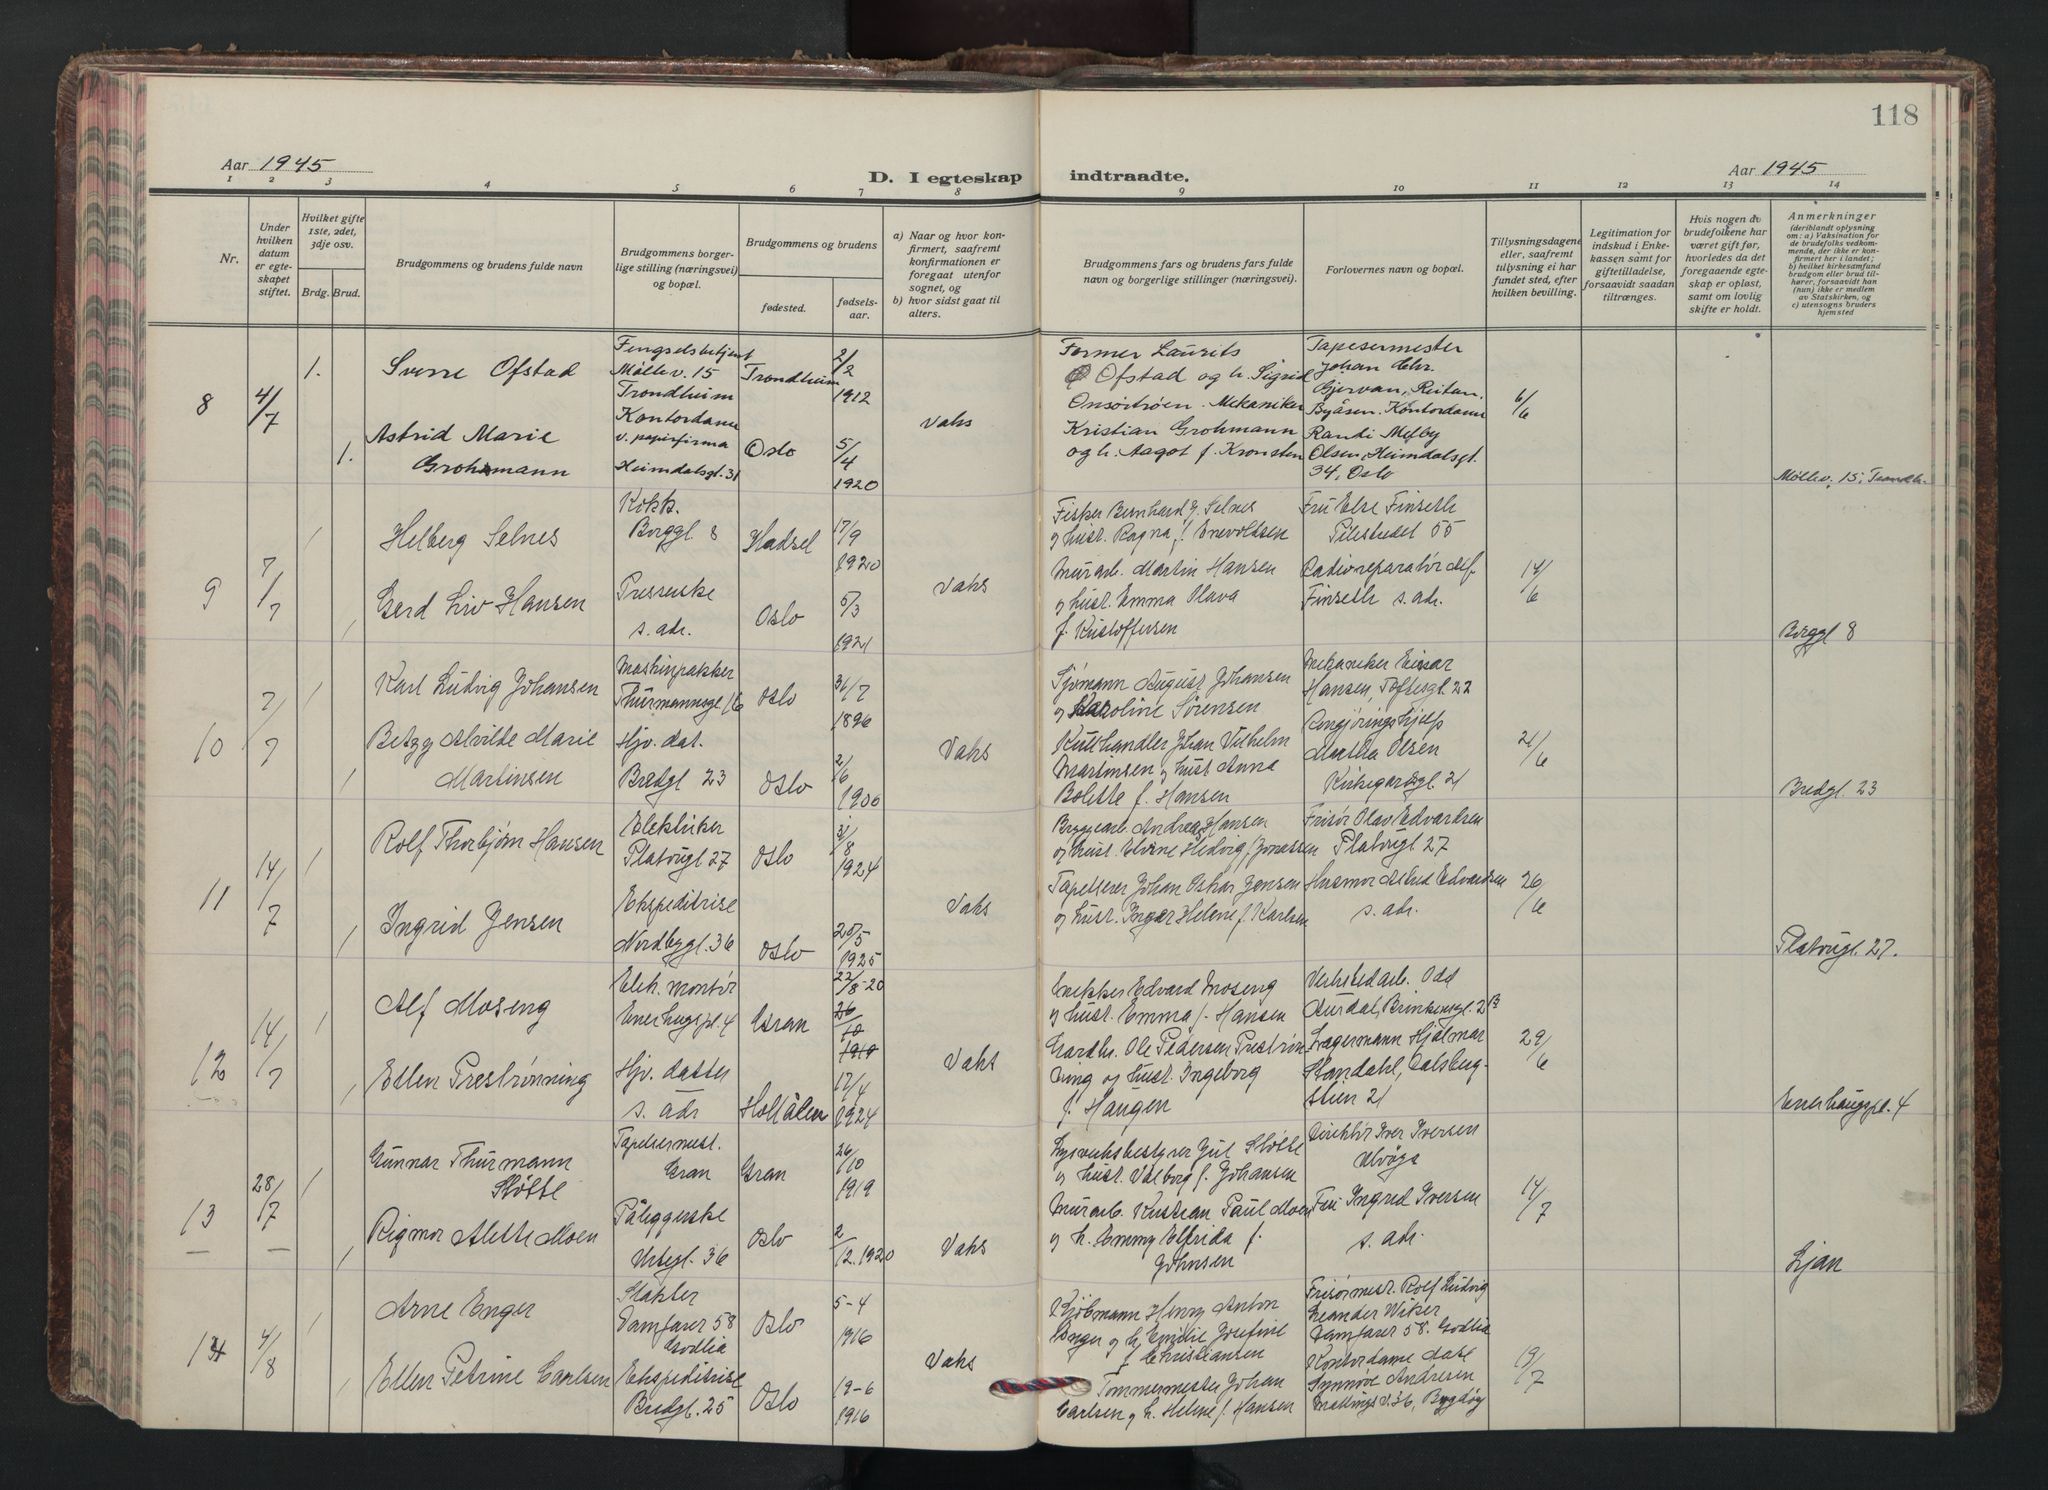 118
Aar 1945
D. I egteskap indtraadte.
Aar 1945
1 2 3 4 5 6 7 8 9 10 11 12 13 14
Nr.
Under hvilken datum er egteskapet stiftet.
Hvilket gifte 1ste, 2det, 3dje osv.
Brdg. Brud.
Brudgommens og brudens fulde navn
Brudgommens borgerlige stilling (næringsvei) og bopæl.
Brudgommens og brudens
fødested.
fødselsaar.
a) Naar og hvor konfirmert, saafremt konfirmationen er foregaat utenfor sognet, og
b) hvor sidst gaat til alters.
Brudgommens fars og brudens fars fulde navn og borgerlige stillinger (næringsvei).
Forlovernes navn og bopæl.
Tillysningsdagene eller, saafremt tillysning ei har fundet sted, efter hvilken bevilling.
Legitimation for indskud i Enkekassen samt for giftetilladelse, forsaavidt saadan tiltrænges.
Hvis nogen av brudefolkene har været gift før, hvorledes da det foregaaende egteskap er opløst, samt om lovlig skifte er holdt.
Anmerkninger
(deriblandt oplysning om: a) Vaksination for de brudefolks vedkommende, der ikke er konfirmert her i landet; b) hvilket kirkesamfund brudgom eller brud tilhører, forsaavidt han (hun) ikke er medlem av Statskirken, og c) utensogns bruders hjemsted
8
4/7
1.
Sverre Ofstad
Fengselsbetjent
Møllev. 15
Trondheim
Trondheim
2/2
1912
Former Laurits
Ofstad og h. Sigrid
Onsøstrøen. Mekaniker
Tapesermester
Johan Chr.
Gjervan, Reitan,
Byåsen. Kontordame
6/6
1.
Astrid Marie
Grohmann
Kontordame
v. papirfirma
Heimdalsgt. 31
Oslo
5/4
1920
Vaks
Kristian Grohmann
og h. Aagot f. Kronsten
Randi Melby
Olsen, Heimdalsgt.
34, Oslo
Møllev. 15, Trondh.
9
7/7
Helberg Selnes
Kokk.
Borggt 8
Hadsel
17/9
1920
Fisker Bernhard J. Selnes
og hust. Ragna f. Enevoldsen
Fru Else Finseth
Pilestredet 55
Gerd Liv Hansen
Presserske
s. adr.
Oslo
5/3
1921
Vaks
Murarb. Martin Hansen
og hust. Emma Olava
f. Kristoffersen
Radioreparatør Alf
Finseth s. adr.
14/6
Borggt 8
10
7/7
Karl Ludvig Johansen
Maskinpakker
Thurmannsgt 16
Oslo
31/7
1896
Sjømann August Johansen
og Karoline Sørensen
Mekaniker Einar
Hansen, Toftesgt. 22
Betzy Alvilde Marie
Martinsen
Hjv. dat.
Bredgt 23
Oslo
2/6
1900
Vaks
Kullhandler Johan Vilhelm
Martinsen og hust Anna
Bolette f. Hansen
Rengjøringshjelp
Martha Olsen
Kirkegardsgt. 21
21/6
Bredgt. 23
11
14/7
Rolf Thorbjørn Hansen
Elektriker
Platougt 27
Oslo
31/8
1924
Bryggearb Andreas Hansen
og hust. Elvine Hedvig f. Jonassen
Frisør Olav Edvardsen
Platougt 27
Ingrid Jensen
Ekspeditrise
Nordbygt. 36
Oslo
25/5
1925
Vaks
Tapetserer Johan Oskar Jensen
og hust. Inger Helene f. Karlsen
Husmor Astrid Edvardsen
s. adr.
26/6
Platougt. 27.
12
14/7
Alf Moseng
Elek. montør
Enerhugspl. 4
Gran
22/8-20
26/10
1919
Snekker Edvard Moseng
og hust. Emma f. Hansen
Verkstedarb. Odd
Aurdal, Brinkensgt. 2B
Ellen Prestrønning
Hjv. datter
s. adr
Holtålen
17/4
1924
Vaks
Gardbr. Ole Pedersen Prestrøn-
ning og hust. Ingeborg
f. Haugen
Lagermann Hjalmar
Standahl, Dalsberg-
stien 21
29/6
Enerhaugspl. 4
13
28/7
Gunnar Thurmann
Støtte
Tapetsermest.
Gran
Gran
26/10
1919
Lysverksbestyrer Jul Støtte
og hust. Valborg f. Johansen
Direktør Iver Iversen
Ulvøya
Rigmor Alette Moen
Påleggerske
Ursgt. 36
Oslo
2/12.1920
Vaks
Murarb. Kristian Paul Moen
og h. Emmy Elfrida f.
Johnsen
Fru Ingrid Iversen
s. adr.
14/7
Ljan
14
4/8
Arne Enger
Slakter
Damfaret 58
Godlia
Oslo
5-4
1916
Kjøbmann Henry Anton
Enger og h. Emilie Josefine
f. Christiansen
Frisørmest. Rolf Ludvig
Leander Wiker
Damfaret 58. Godlia
Ellen Petrine Carlsen
Ekspeditrise
Bredgt. 25
Oslo
19-6
1916
Vaks
Tømmermester Johan
Carlsen og h. Helene f. Hansen
Kontordame Aase
Synnøve Andresen
Mellings v. 36, Bygdøy
19/7